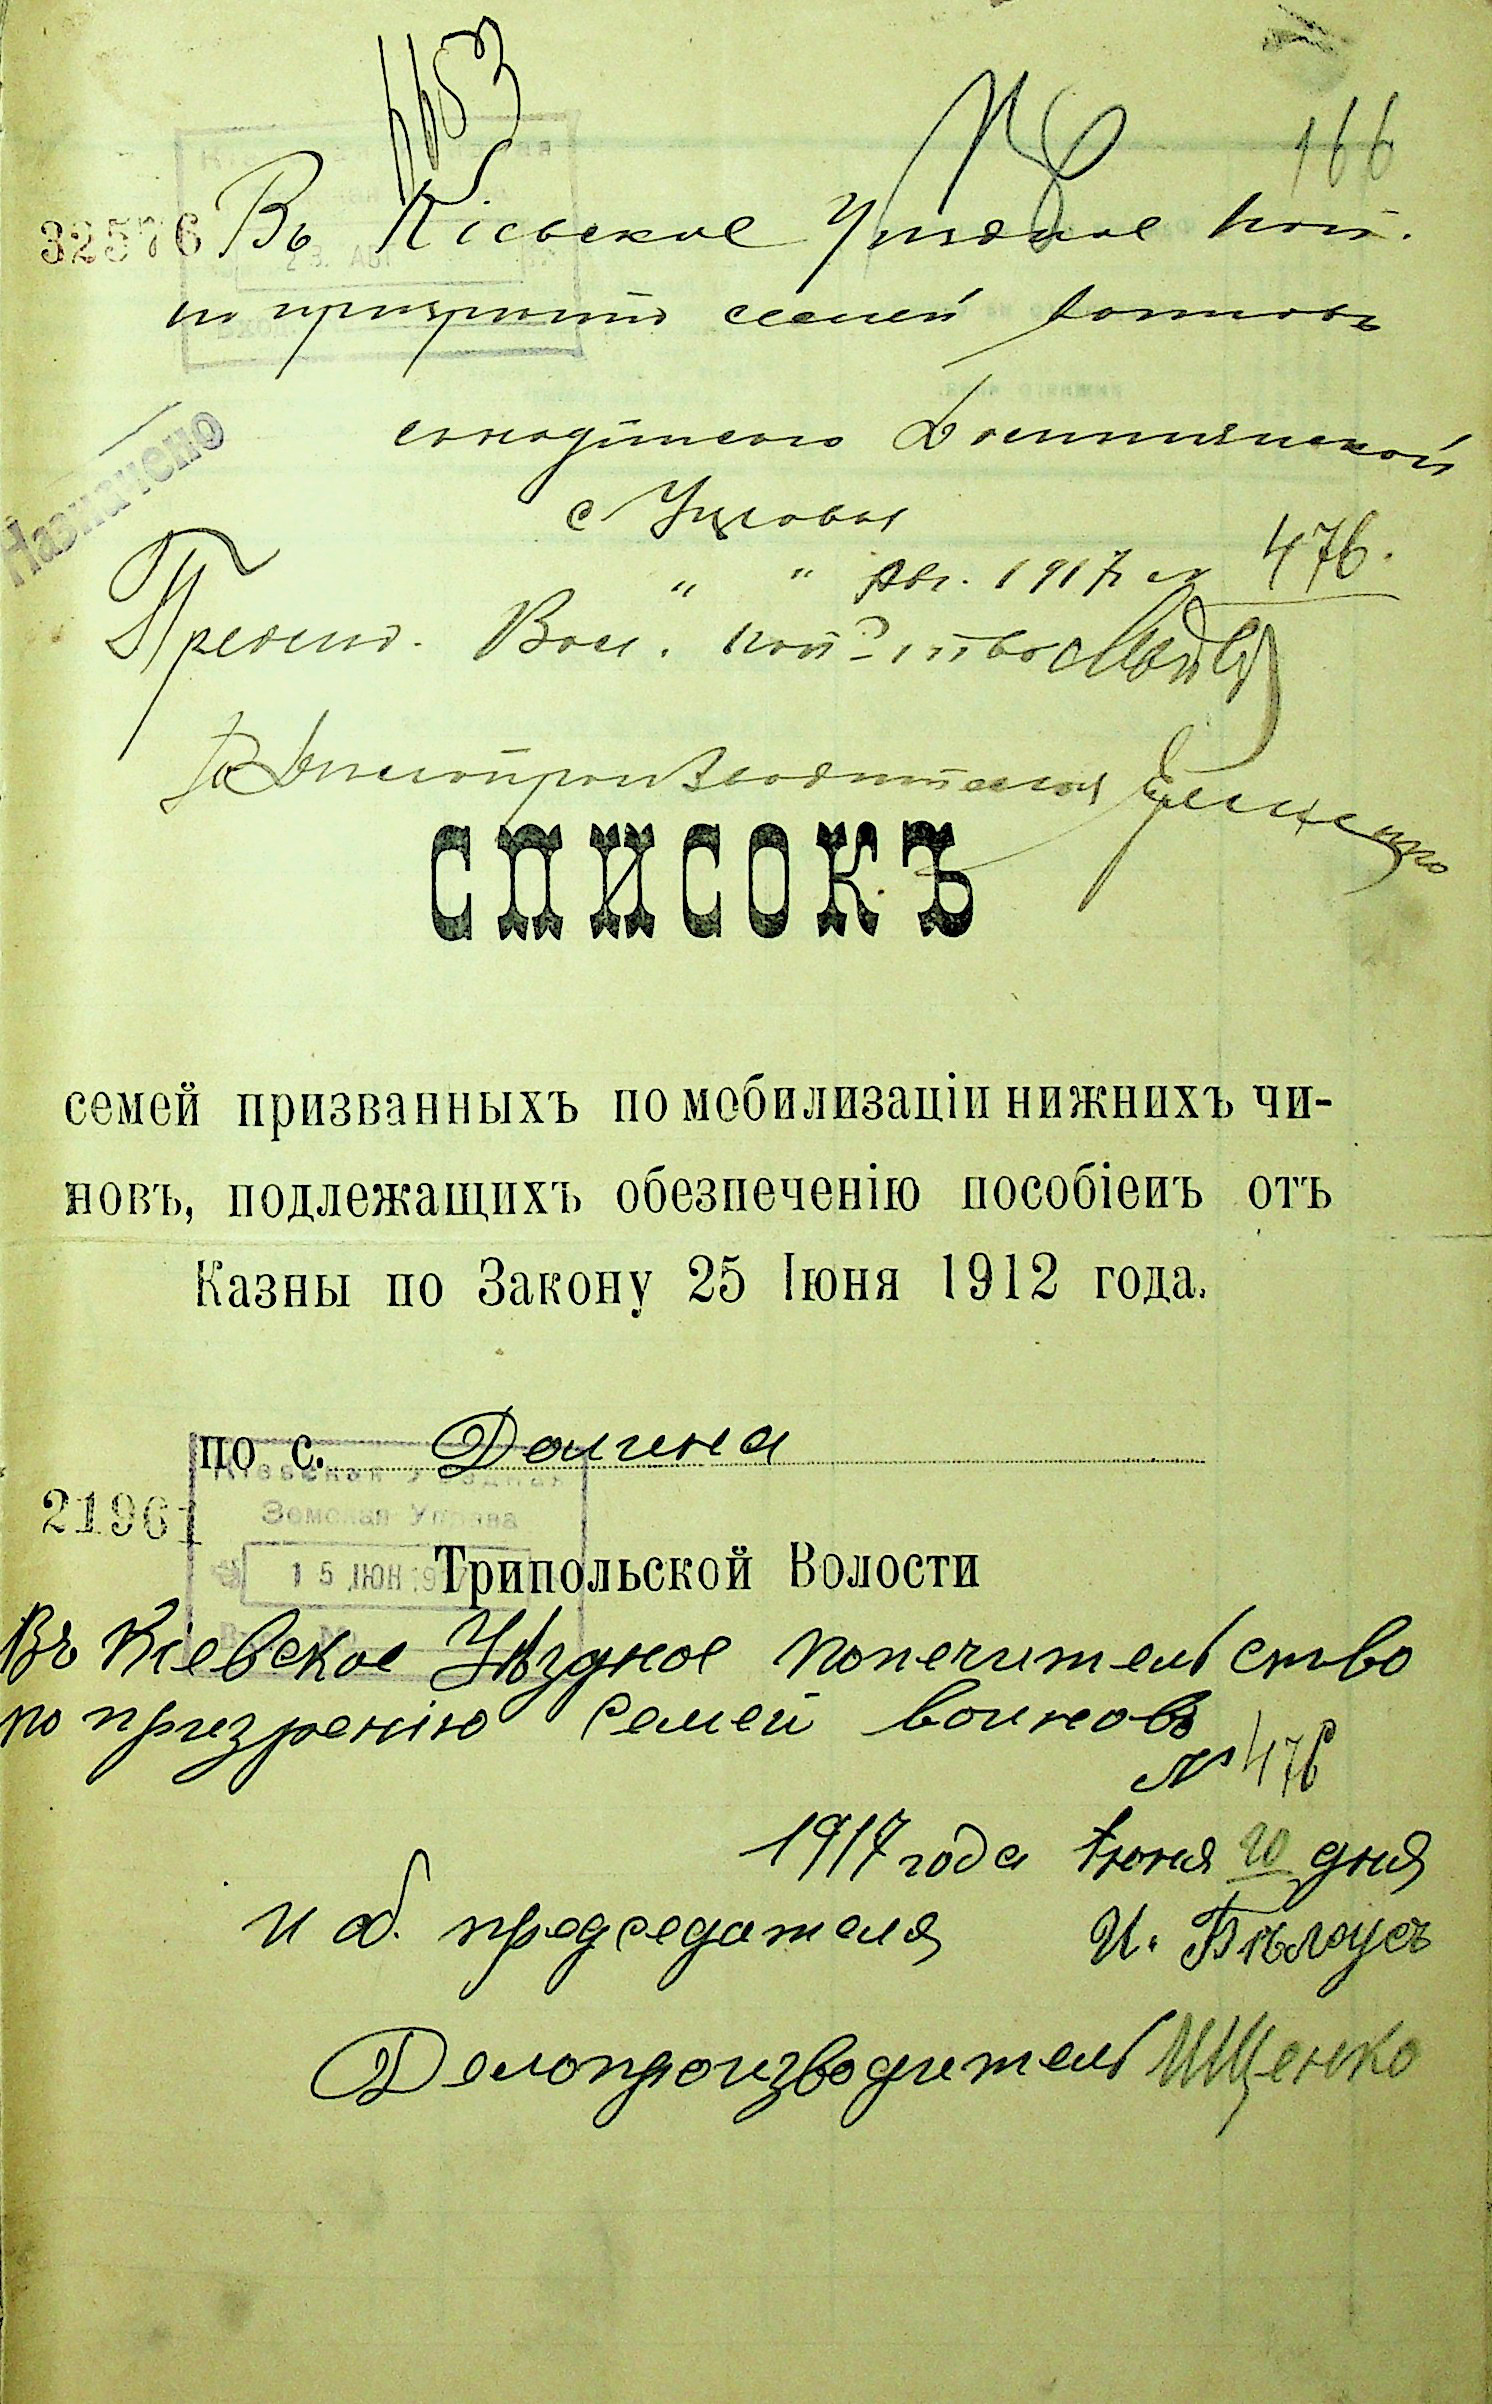 6653
166
32576 Въ Кіевское Уѣздное Поп.
по призрѣнію семей воиновъ
Назначено
Авг. 1917 476.
Предсид. Вол. Поп-тва
Дѣлопроизводителя
СПИСОКЪ
семей призванныхъ по мобилизаціи нижнихъ чи-
новъ, подлежащихъ обезпеченію пособіемъ отъ
Казны по Закону 25 Іюня 1912 года.
по с. Долина
Кіевская Уѣздная
21961 Земская Управа
15 ІЮН 1917
Трипольской Волости
Въ Кіевское Уѣздное попечительство
по призрению семей воиновъ
№ 476
1917 года Іюня 20 дня
И об. председателя И. Бѣлоусъ
Делопроизводитель Ищенко